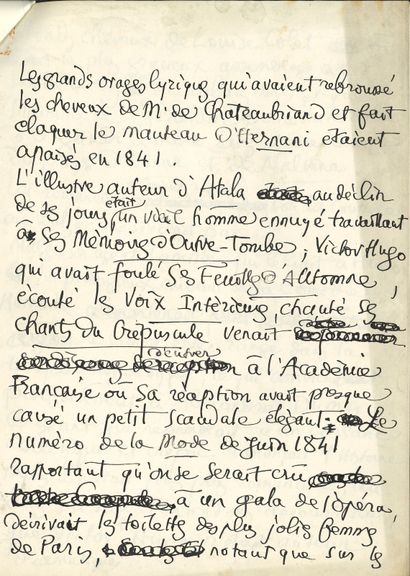 Les grands orages lyriques qui avaient rebroussé
les cheveux de M. de Chateaubriand et fait
claquer le manteau d'Hernani étaient
apaisés en 1841.
L'illustre auteur d'Atala au déclin
de ses jours, était un vieil homme ennuyé travaillant
à ses Mémoires d'Outre-Tombe ; Victor Hugo
qui avait foulé ses Feuilles d'Automne,
écouté les Voix Intérieures, chanté ses
chants du Crépuscule venait
à l'Académie
Française où sa réception avait presque
causé un petit scandale élégant. Le
numéro de la Mode de Juin 1841
rapportant qu'on se serait cru
à un gala de l'opéra,
décrivait les toilettes des plus jolies femmes
de Paris, notant que sur les